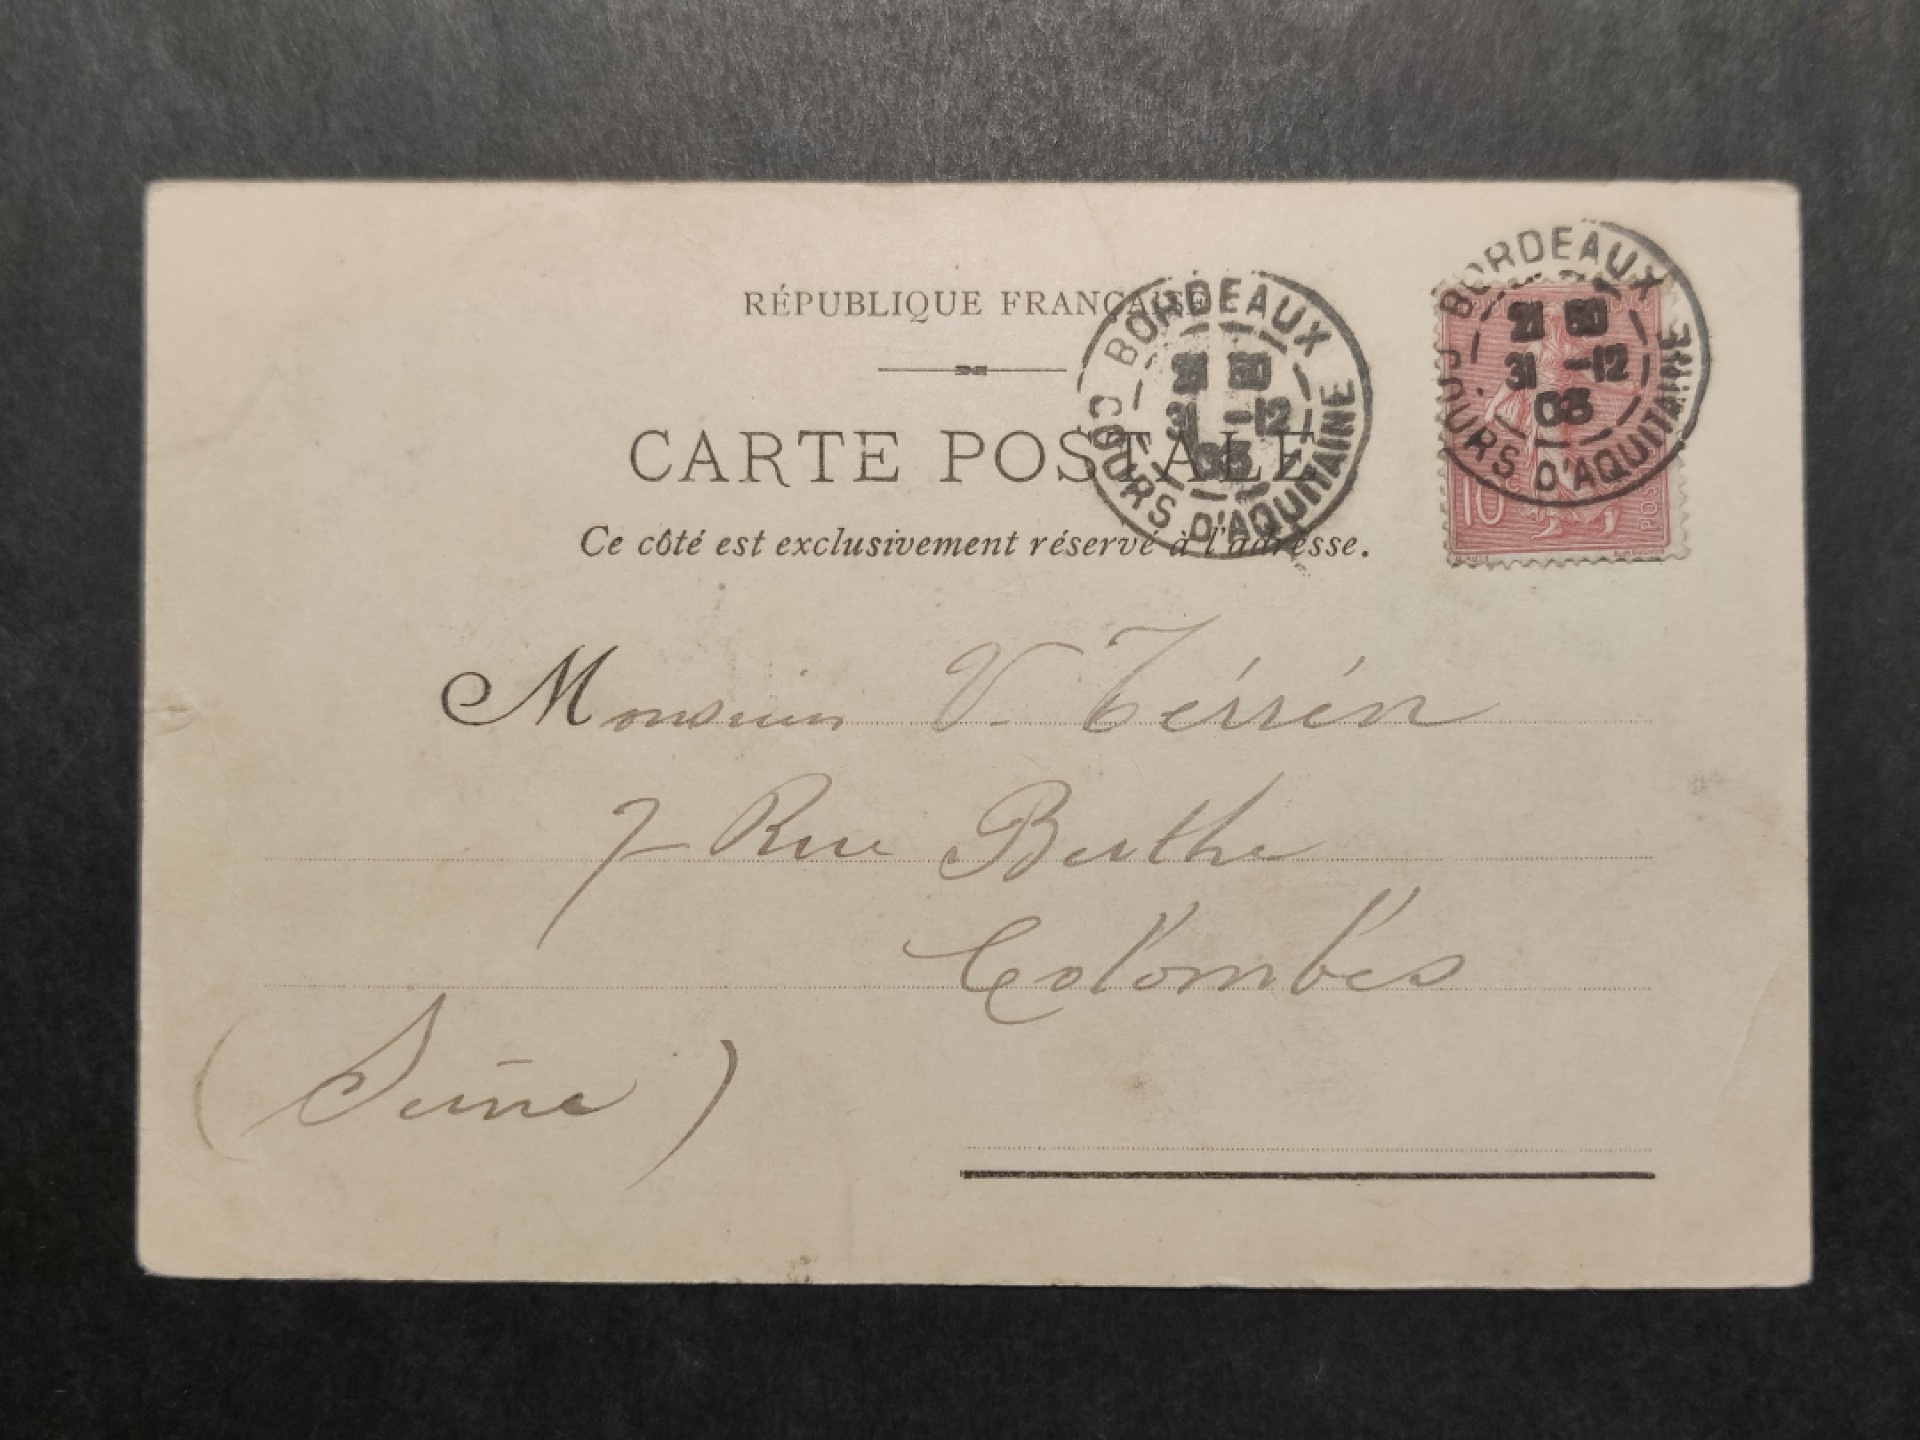 RÉPUBLIQUE FRANÇAISE
CARTE POSTALE
Ce côté est exclusivement réservé à l'adresse.
BORDEAUX
21 50
31 -12
03
COURS D'AQUITAINE
BORDEAUX
21 50
31 -12
03
COURS D'AQUITAINE
10
Monsieur V. Térrén
7 Rue Berthe
Colombes
(Seine)